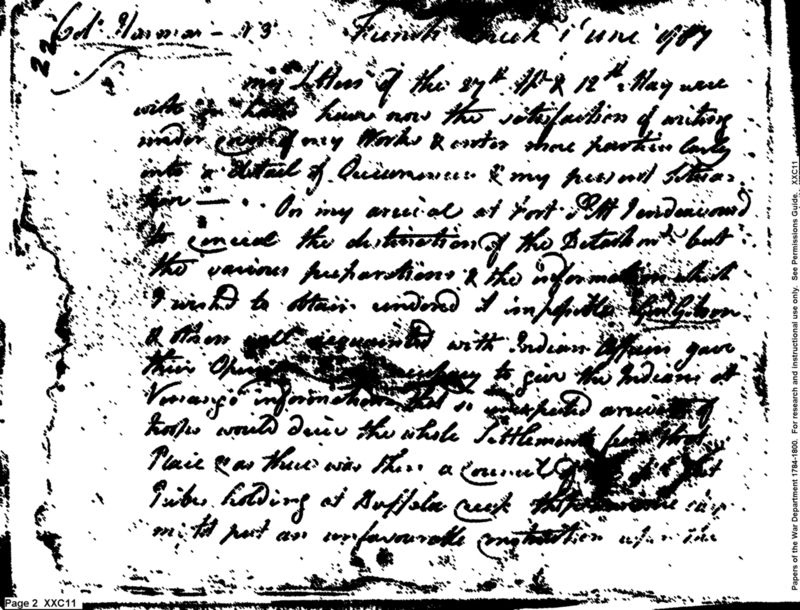 22
Col. Harmar - N 3 French Creek 1 June 1787
my Letters of the 27th Apl & 12th May were
with have now the satisfaction of writing
under cover of my Works & enter more particularly
into a detail of Occurrences & my present Situa-
tion — On my arrival at Fort Pitt I endeavoured
to conceal the destination of the Detachmt but
the various preparations & the information which
I wish'd to obtain rendered it impossible Genl Gibson
& others well acquainted with Indian Affairs gave
their to give the Indians at
Venango information that so unexpected arrival of
troops would drive the whole Settlement from that
Place & as there was then a Council of
Tribes holding at Buffalo creek
might put an unfavourable construction upon the
Page 2 XXC11
Papers of the War Department 1784-1800. For research and instructional use only. See Permissions Guide. XXC11